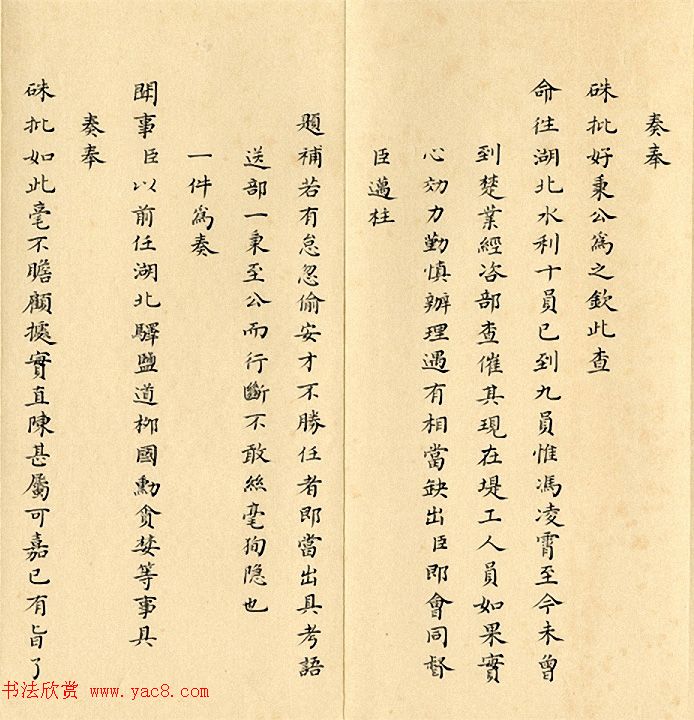 奏奉
硃批好秉公為之欽此查
命往湖北水利十員已到九員惟馮凌霄至今未曾
到楚業經咨部查催其現在堤工人員如果實
心効力勤慎辦理遇有相當缺出臣即會同督
臣邁柱
題補若有怠忽偷安才不勝任者即當出具考語
送部一秉至公而行斷不敢絲毫徇隱也
一件為奏
聞事臣以前任湖北驛鹽道柳國勳貪婪等事具
奏奉
硃批如此毫不瞻顧據實直陳甚屬可嘉已有旨了
书法欣赏 www.yac8.com